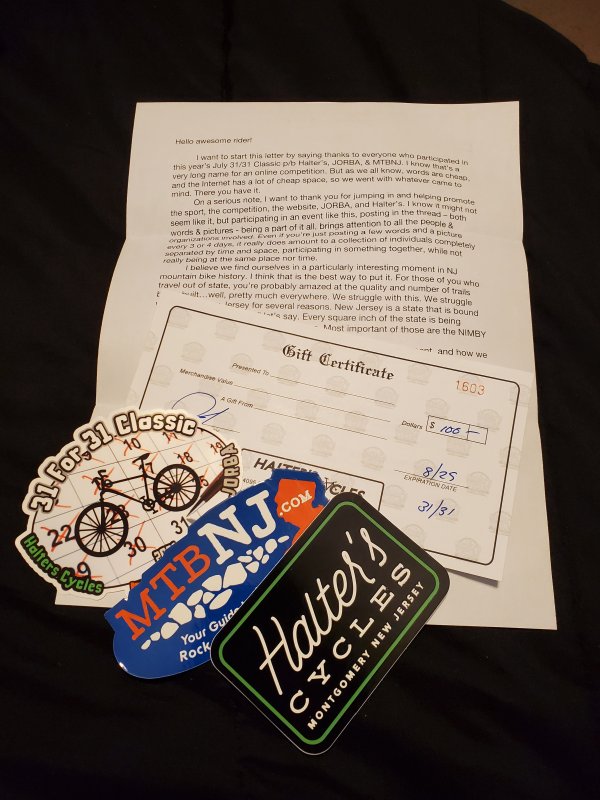 Hello awesome rider!
I want to start this letter by saying thanks to everyone who participated in
this year's July 31/31 Classic p/b Halter's, JORBA, & MTBNJ. I know that's a
very long name for an online competition. But as we all know, words are cheap,
and the Internet has a lot of cheap space, so we went with whatever came to
mind. There you have it.
On a serious note, I want to thank you for jumping in and helping promote
the sport, the competition, the website, JORBA, and Halter's. I know it might not
seem like it, but participating in an event like this, posting in the thread - both
words & pictures - being a part of it all, brings attention to all the people &
organizations involved. Even if you're just posting a few words and a picture
every 3 or 4 days, it really does amount to a collection of individuals completely
separated by time and space, participating in something together, while not
really being at the same place nor time.
I believe we find ourselves in a particularly interesting moment in NJ
mountain bike history. I think that is the best way to put it. For those of you who
travel out of state, you're probably amazed at the quality and number of trails
built...well, pretty much everywhere. We struggle with this. We struggle
Jersey for several reasons. New Jersey is a state that is bound
let's say. Every square inch of the state is being
Most important of those are the NIMBY
and how we
Gift Certificate
1603
Presented To
Merchandise Value
Dollars $ 100 -
A Gift From
8/25
EXPIRATION DATE
31/31
HALTER'S CYCLES
4095
31 For 31 Classic
JORBA
10
11
19
22
30
31
9
Halters Cycles
MTBNJ.COM
Your Guide
Rock
Halter's
CYCLES
MONTGOMERY NEW JERSEY